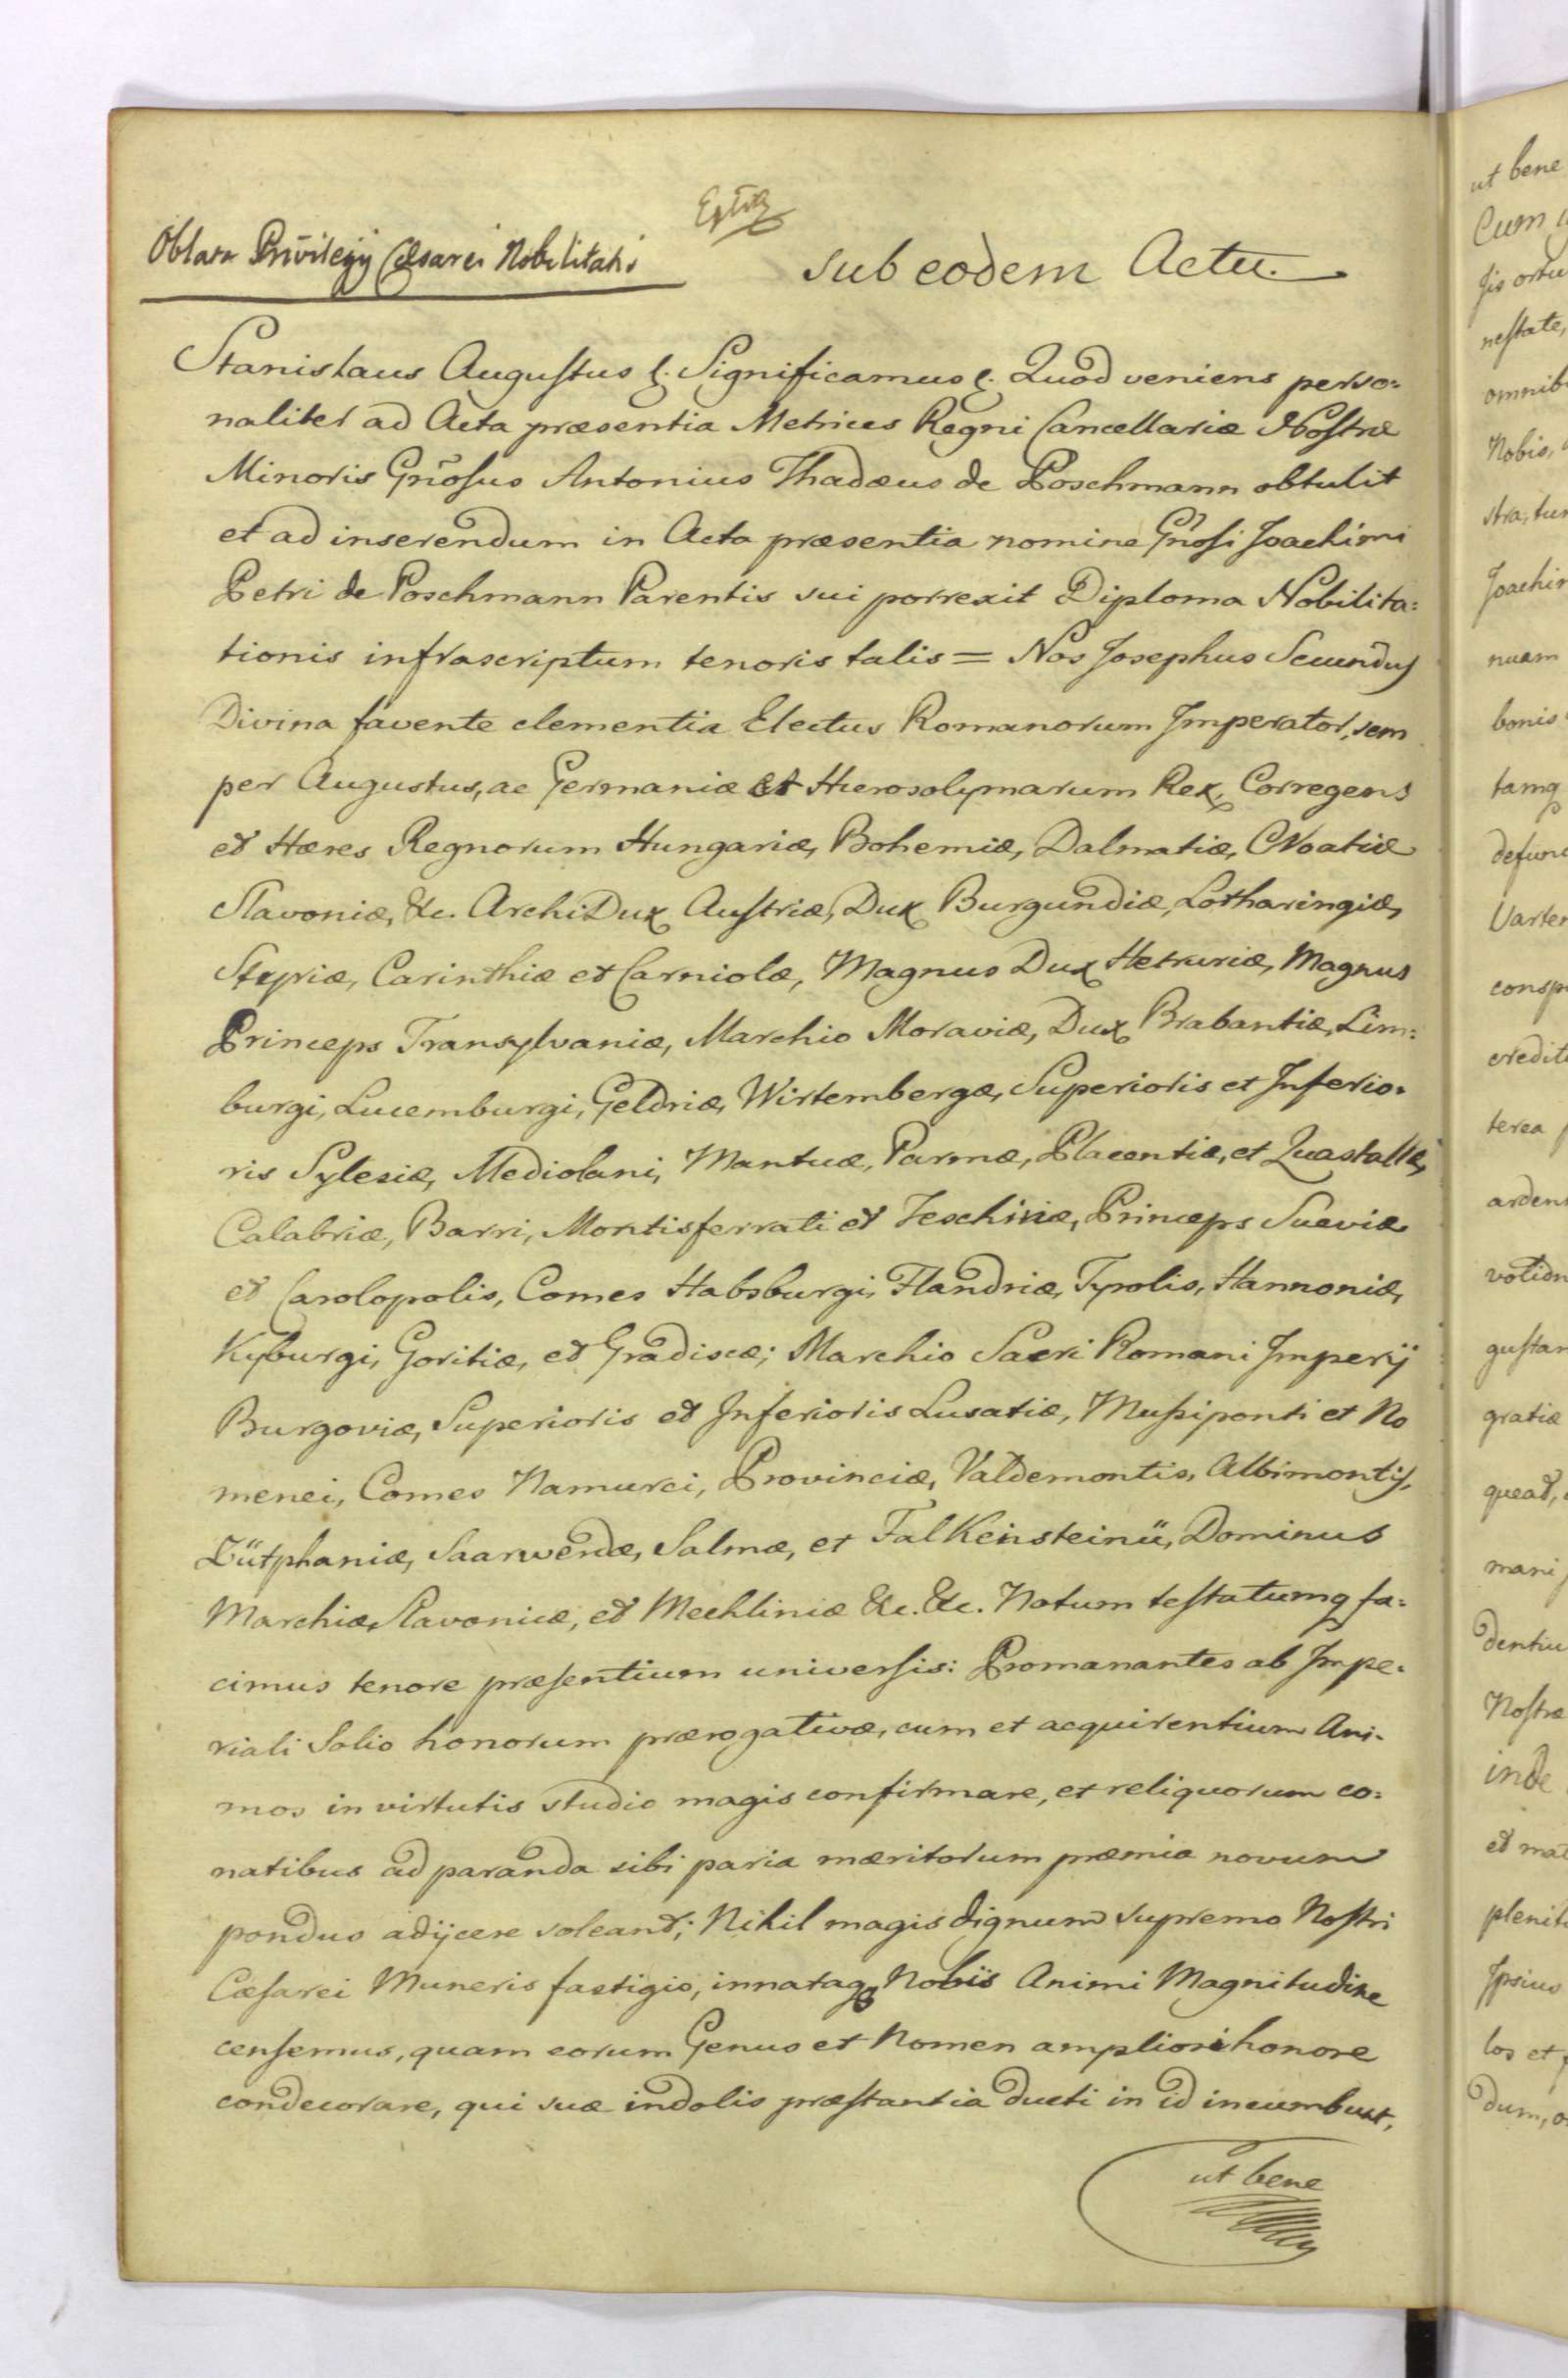 Oblata Privilegij Cæsarei Nobilitatis
sub eodem Actu.
Stanislaus Augustus &. Significamus &. Quod veniens perso=
naliter ad Acta præsentia Metrices Regni Cancellariæ Nostræ
Minoris Gnõsus Antonius Thadæus de Poschmann obtulit
et ad inserendum in Acta præsentia nomine Gñosi Joachimi
Petri de Poschmann Parentis sui porrexit Diploma Nobilita=
tionis infrascriptum tenoris talis = Nos Josephus Secundus
Divina favente clementia Electus Romanorum Imperator, sem
per Augustus, ac Germaniæ et Hierosolymarum Rex, Corregens
et Hæres Regnorum Hungariæ, Bohemiæ, Dalmatiæ, Croatiæ
Slavoniæ, &c. ArchiDux Austriæ, Dux Burgundiæ, Lotharingiæ,
Styriæ, Carinthiæ et Carniolæ, Magnus Dux Hetruriæ, Magnus
Princeps Transylvaniæ, Marchio Moraviæ, Dux Brabantiæ, Lim=
burgi, Lucemburgi, Geldriæ, Wirtembergæ, Superioris et Inferio=
ris Sylesiæ, Mediolani, Mantuæ, Parmæ, Placentiæ, et Quastallæ,
Calabriæ, Barri, Montisferrati et Teschinæ, Princeps Sueviæ
et Carolopolis, Comes Habsburgi, Flandriæ, Tyrolis, Hannoniæ,
Kyburgi, Goritiæ, et Gradiscæ; Marchio Sacri Romani Imperij
Burgoviæ, Superioris et Inferioris Lusatiæ, Mussiponti et No
menei, Comes Namurci, Provinciæ, Valdemontis, Albimontis,
Zütphaniæ, Saarwendæ, Salmæ, et Falkensteinii, Dominus
Marchiæ Slavonicæ, et Mechliniæ &c. &c. Notum testatumq fa=
cimus tenore præsentium universis: Promanantes ab Impe=
riali Solio honorum prærogativæ, cum et acquirentium Ani=
mos in virtutis studio magis confirmare, et reliquorum co=
natibus ad paranda sibi paria mæritorum præmia novum
pondus adijcere soleant; Nihil magis dignum supremo Nostri
Cæsarei Muneris fastigio, innataq Nobis Animi Magnitudine
censemus, quam eorum Genus et Nomen ampliori honore
condecorare, qui suæ indolis præstantia ducti in id incumbunt,
ut bene
ut bene
Cum
nestate,
Nobis,
nuam
bonis
tamq
conspi
terea
gratiæ
queat,
mani
Nostræ
inde
Ipsius
los et